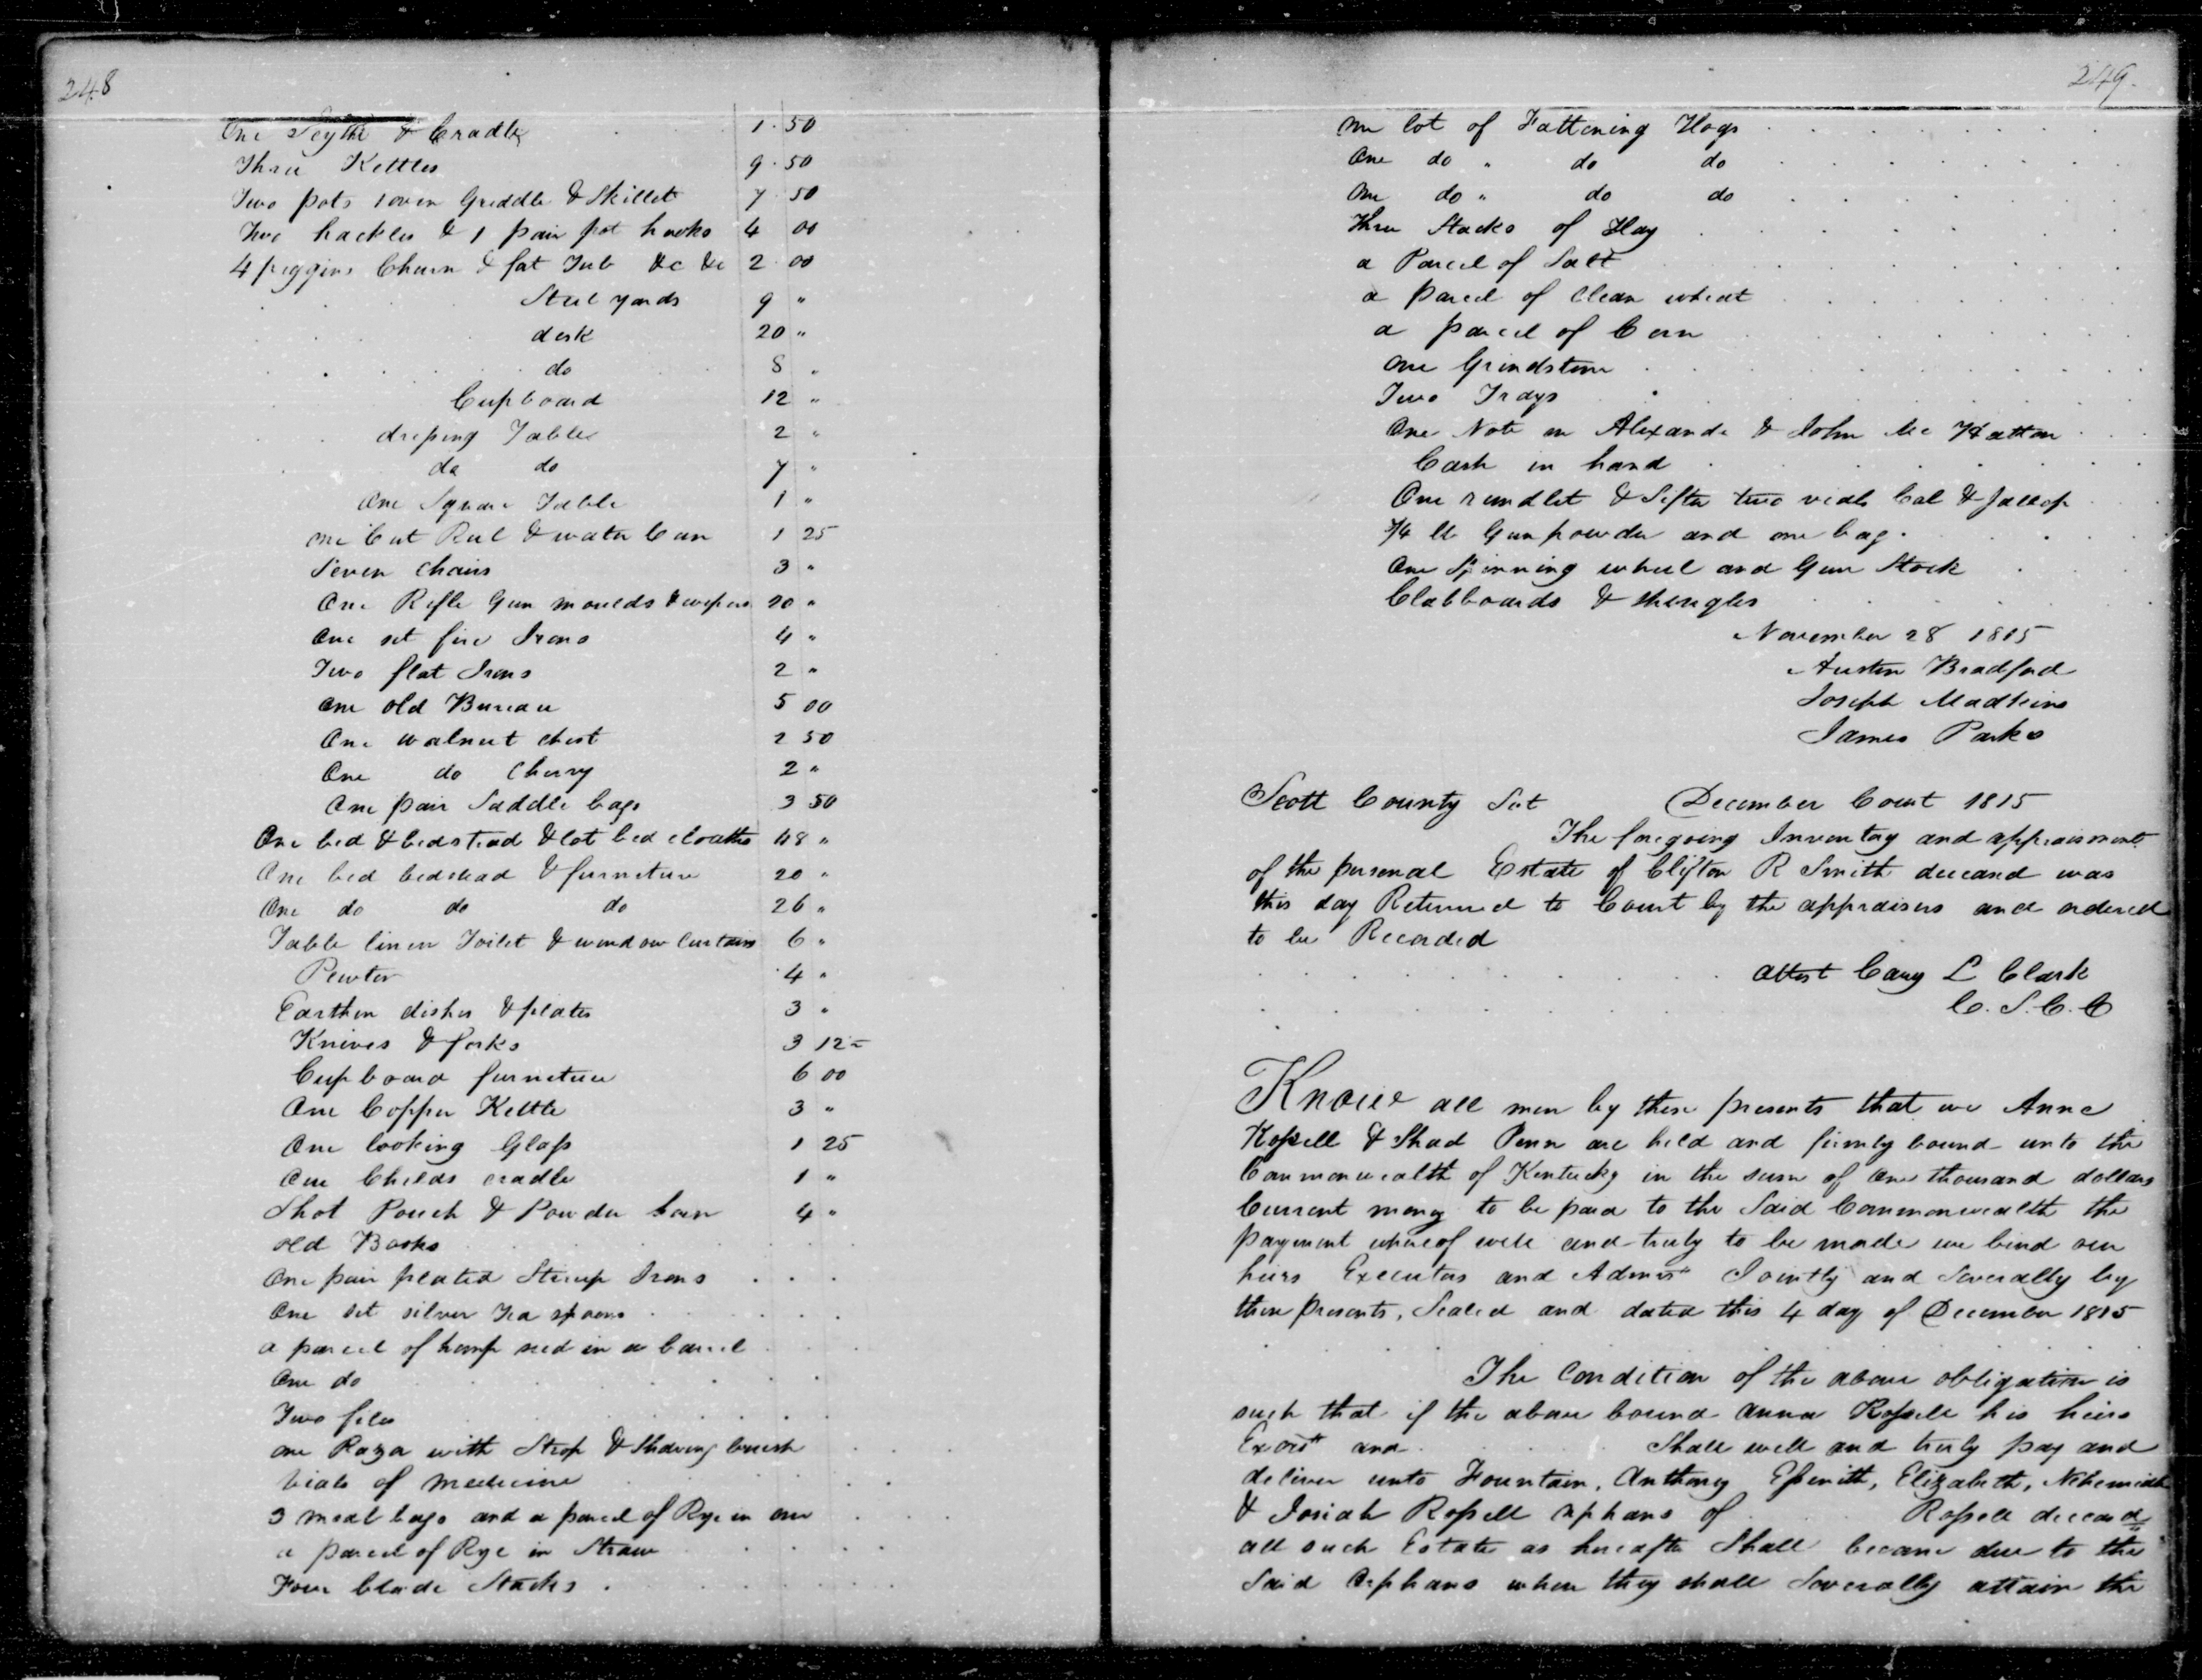 248
One Scythe & Cradle 1.50
Three Kettles 9.50
Two pots 1 oven Griddle & Skillet 7 50
Two hackles & 1 pair pot hooks 4 00
4 piggins Churn & fat Tub &c &c 2 00
Steel yards 9 "
desk 20 "
do 8 "
Cupboard 12 "
dressing Table 2 "
do do 7 "
One Square Table 1 "
one Cut Reel & water Can 1 25
Seven chairs 3 "
One Rifle Gun moulds & wipers 20 "
One set fire Irons 4 "
Two flat Irons 2 "
one old Bureau 5 00
One walnut chest 2 50
One do Cherry 2 "
One pair Saddle bags 3 50
One bed & bedstead & lot bed cloaths 48 "
One bed bedstead & furniture 20 "
One do do do 26 "
Table linen Toilet & window Curtains 6 "
Pewter 4 "
Earthen dishes & plates 3 "
Knives & forks 3 12
Cupboard furniture 6 00
One Copper Kettle 3 "
One looking Glass 1 25
One Childs cradle 1 "
Shot Pouch & Powder horn 4 "
old Books
One pair plated Stirrup Irons
One set silver Tea spoons
a parcel of hemp seed in a barrel
One do
Two files
one Razor with Strop & Shaving brush
vials of Medicine
3 meal bags and a parcel of Rye in one
a parcel of Rye in Straw
Four blade Stacks
249.
One lot of Fattening Hogs
One do " do do
One do " do do
Three Stacks of Hay
a Parcel of Salt
a parcel of Clean wheat
a parcel of Corn
One Grindstone
Two Trays
One Note on Alexande & John Mc Hatton
Cash in hand
One rundlet & Sifter two vials Cal & Jallop
3/4 lb Gun powder and one bag
One Spinning wheel and Gun Stock
Clabboards & shingles
November 28 1815
Austin Bradford
Joseph Madkins
James Parks
Scott County Sct December Court 1815
The foregoing Inventory and appraisment
of the personal Estate of Clifton R Smith deceasd was
this day Returned to Court by the appraisers and ordered
to be Recorded
attest Cary L Clark
C. S. C. C
Know all men by these presents that we Anne
Rossell & Shad Penn are held and firmly bound unto the
Commonwealth of Kentucky in the sum of One thousand dollars
Current money to be paid to the Said Commonwealth the
payment whereof well and truly to be made we bind our
heirs Executors and Admrs Jointly and Severally by
these presents, Sealed and dated this 4 day of December 1815
The Condition of the above obligation is
such that if the above bound Anna Rossell his heirs
and Shall well and truly pay and
deliver unto Fountain, Anthony Elizabeth, Nehemiah
& Josiah Rossell orphans of Rossell deceasd
all such Estate as hereafter Shall become due to the
Said Orphans when they shall Severally attain the